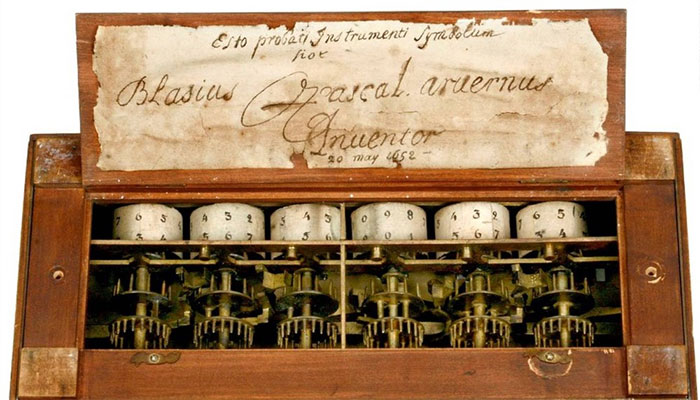 Esto probati Instrumenti Symbolum
hoc
Blasius Pascal. arvernus
Inventor
20 may 1652
7 6 5 4 3 2 5 4 3 0 9 8 5 4 3 2 1 6 5
3 4 6 7 6 7 3 4